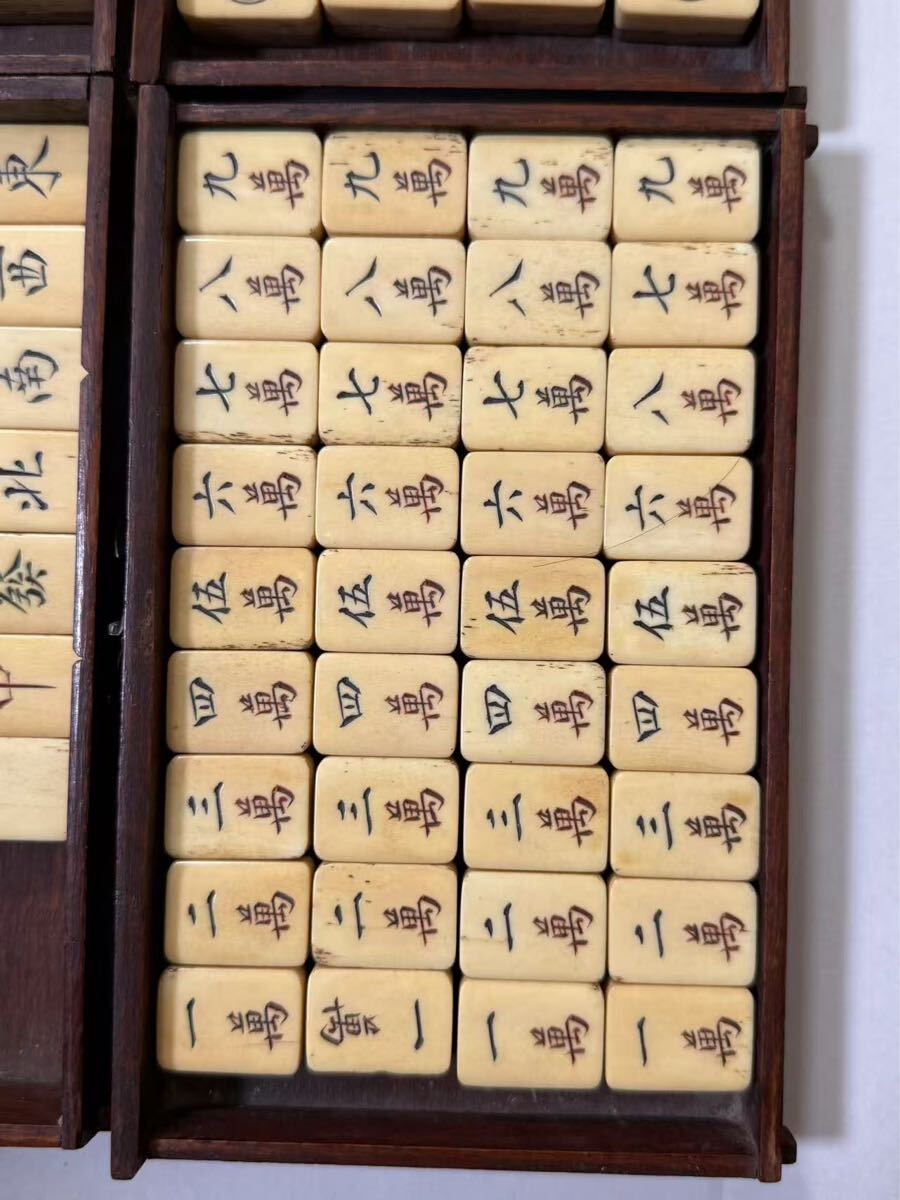 東
西
南
北
發
中
九萬 九萬 九萬 九萬
八萬 八萬 八萬 七萬
七萬 七萬 七萬 八萬
六萬 六萬 六萬 六萬
伍萬 伍萬 伍萬 伍萬
四萬 四萬 四萬 四萬
三萬 三萬 三萬 三萬
二萬 二萬 二萬 二萬
一萬 一萬 一萬 一萬